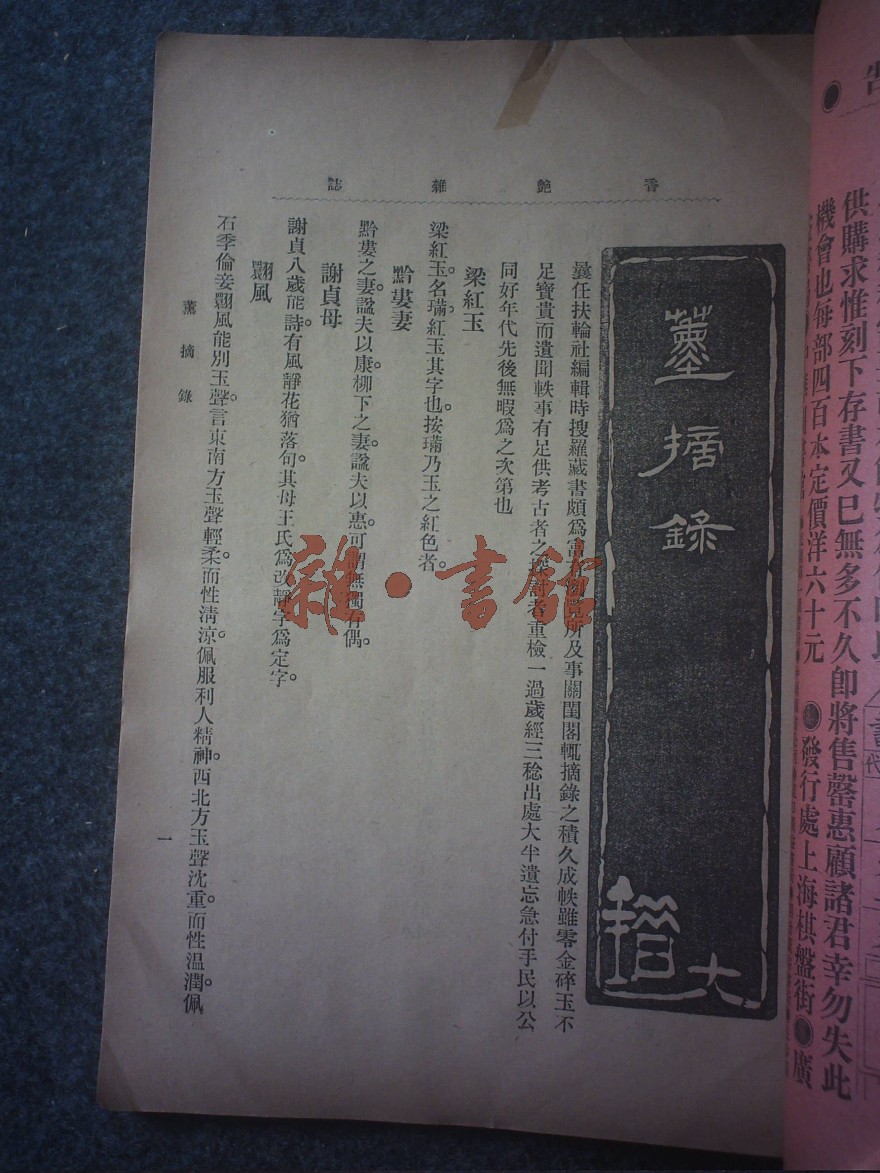 供購求惟刻下存書又已無多不久卽將售罄惠顧諸君幸勿失此
機會也每部四百本定價洋六十元　●發行處上海棋盤街●廣
香艷雜誌
薰摘錄
大
曩任扶輪社編輯時搜羅藏書頗爲富有瀏覽所及事關閨閣輒摘錄之積久成帙雖零金碎玉不
足寶貴而遺聞軼事有足供考古者之探討者重檢一過歲經三稔出處大半遺忘急付手民以公
同好年代先後無暇爲之次第也
梁紅玉
梁紅玉。名璊。紅玉其字也。按璊乃玉之紅色者。
黔婁妻
黔婁之妻。諡夫以康。柳下之妻。諡夫以惠。可謂無獨有偶。
謝貞母
謝貞八歲能詩。有風靜花猶落句。其母王氏爲改靜字爲定字。
翾風
石季倫妾翾風能別玉聲。言東南方玉聲輕柔。而性清涼。佩服利人精神。西北方玉聲沈重。而性温潤。佩
薰摘錄
一
雜·書館